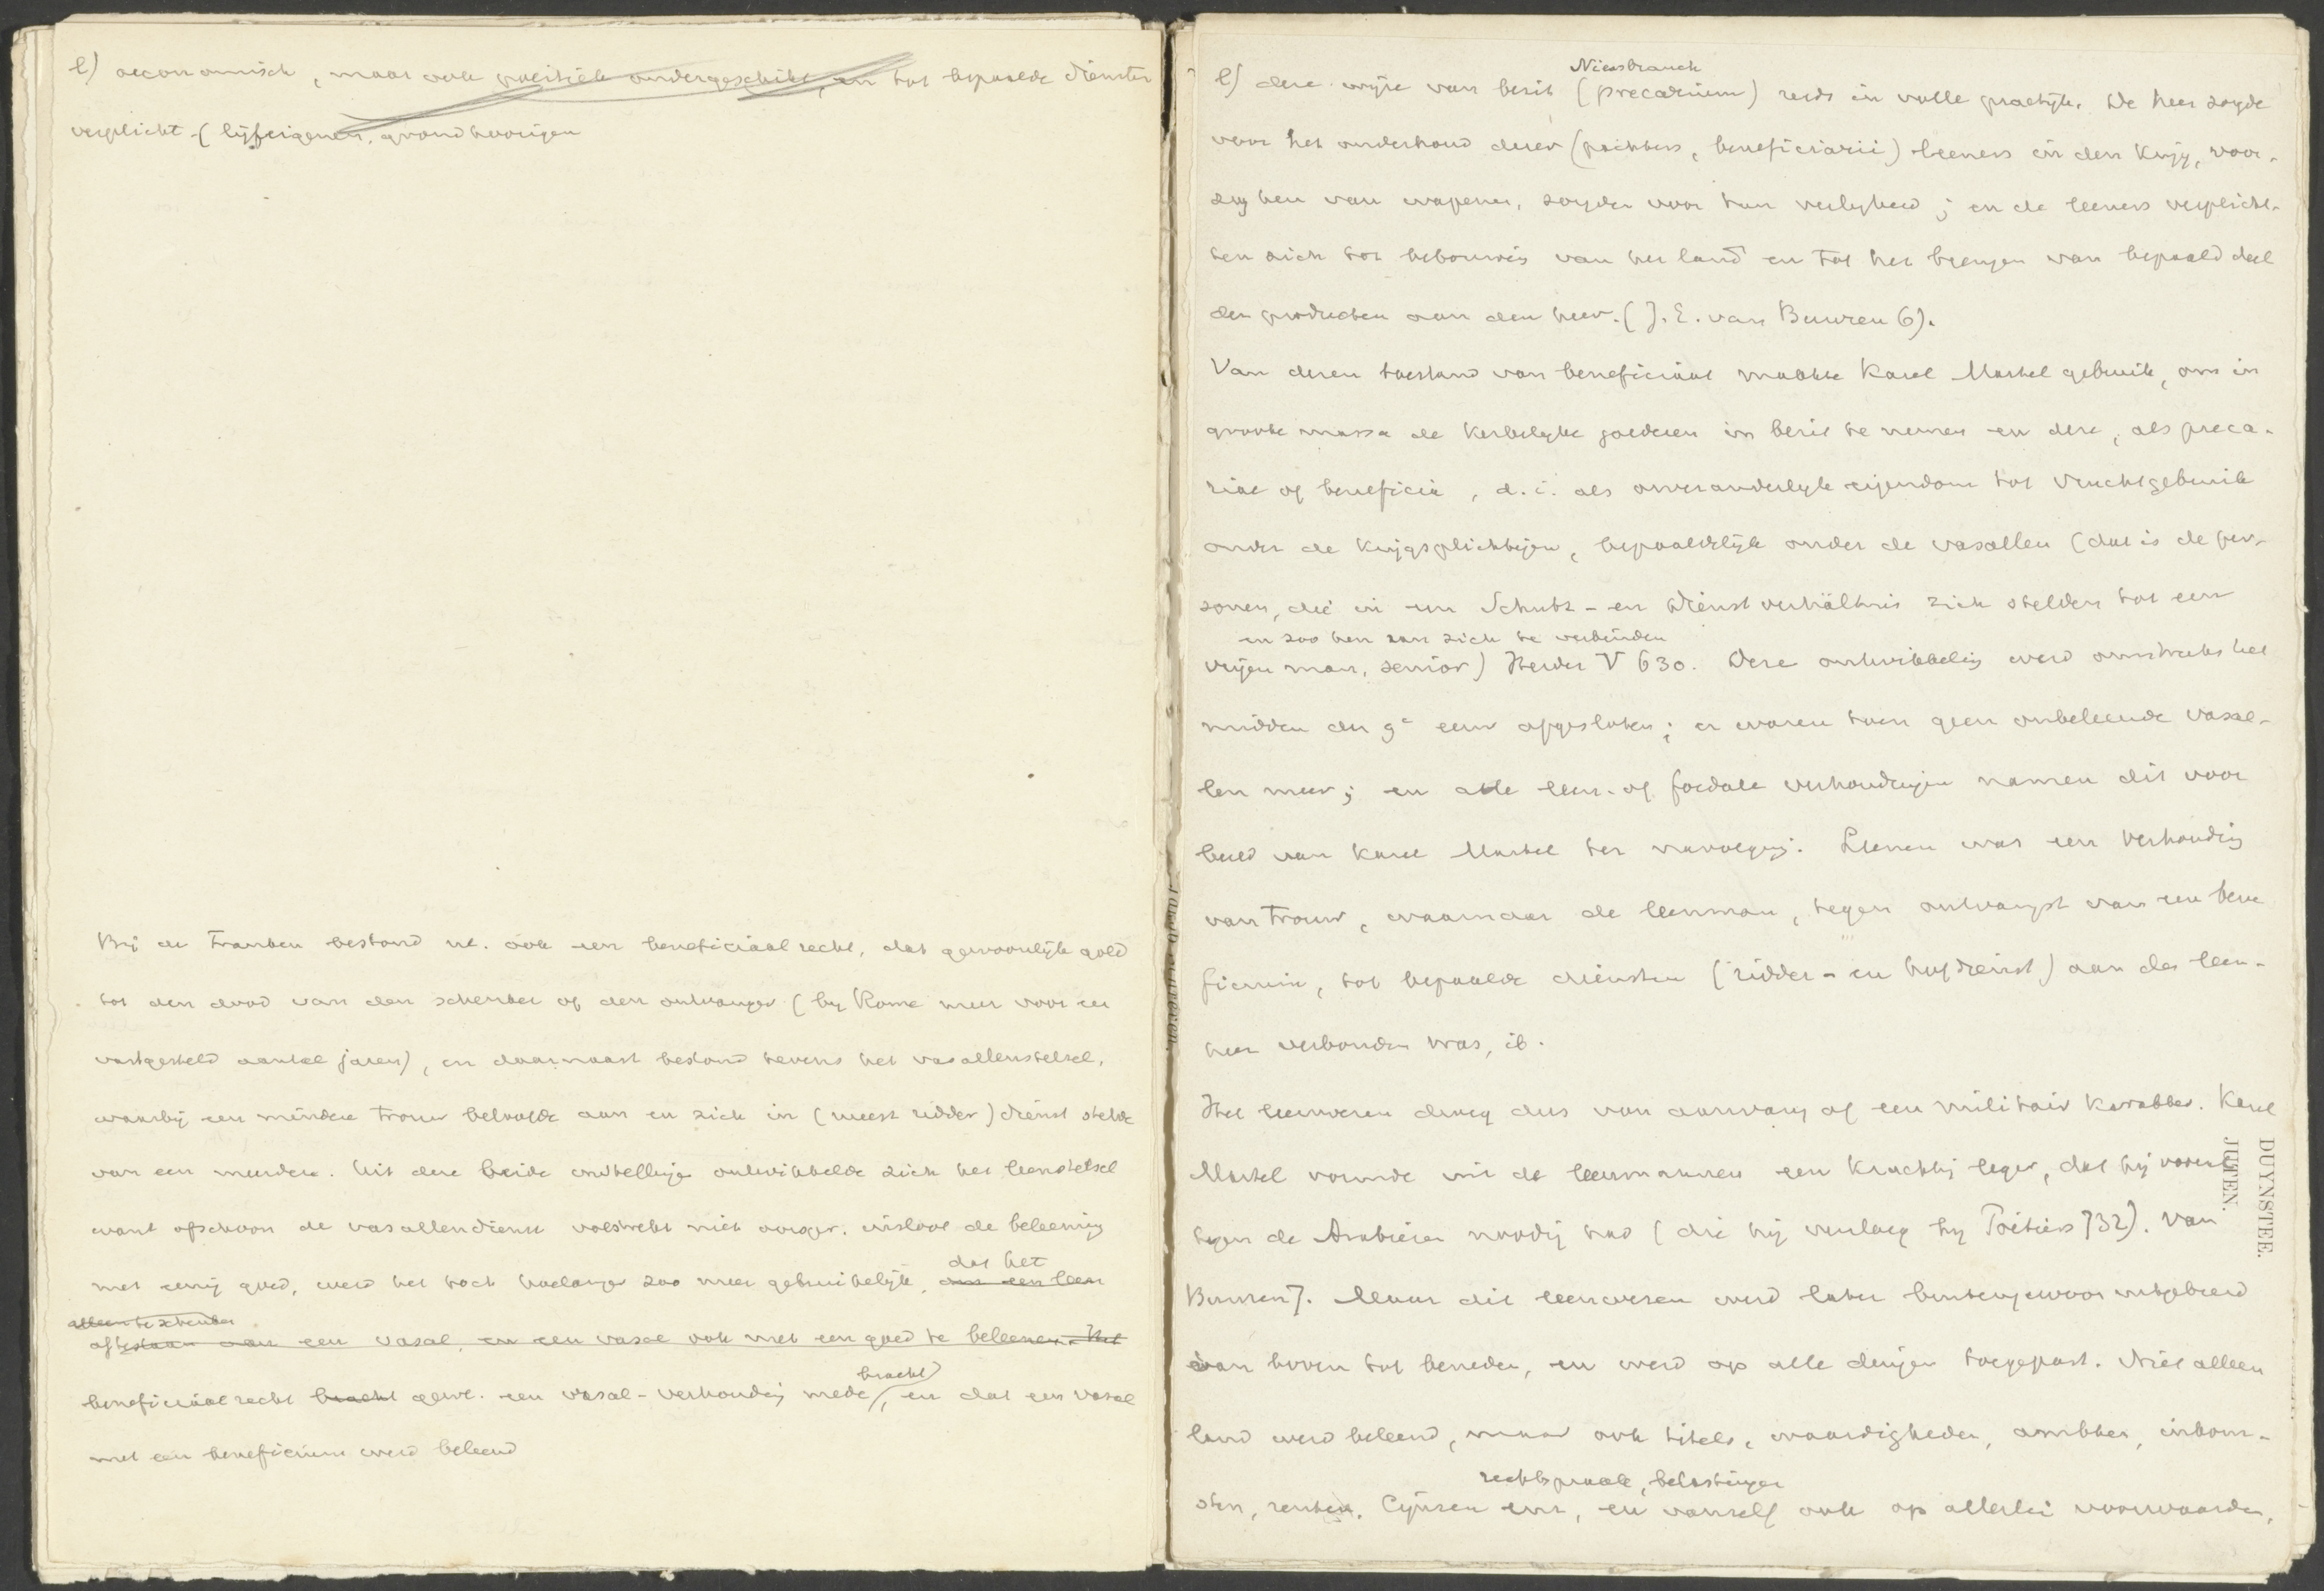 l) oeconomisch, maar ook politiek ondergeschikt, en tot bepaalde diensten
verplicht (lijfeigenen, grondhoorigen
Bij de Franken bestond nl. ook een beneficiaal recht, dat gewoonlijk gold
tot den dood van den schenker of den ontvanger (bij Rome meer voor een
vastgesteld aantal jaren), en daarnaast bestond tevens het vasallenstelsel,
waarbij een mindere trouw beloofde aan en zich in (meest ridder) dienst stelde
van een meerdere. Uit deze beide instellingen ontwikkelde zich het leenstelsel
want ofschoon de vasallendienst volstrekt niet insloot de beleening
met eenig goed, werd het toch hoelanger zoo meer gebruikelijk, een leen
dat het
alleen te schenken
af te staan aan een vasal, en een vasal ook met een goed te beleenen. Het
beneficiaal recht bracht gew. een vasal-verhouding mede, en dat een vasal
bracht
met een beneficium werd beleend
Niessbrauch
l) deze wijze van bezit (precarium) reeds in volle practijk. De heer zorgde
voor het onderhoud dezer (pachters, beneficiarii) leeners in den krijg, voor-
zag hen van wapenen, zorgde voor hun veiligheid; en de leeners verplicht-
ten zich tot bebouwing van het land en tot het brengen van bepaald deel
der producten aan den heer. (J. E. van Buuren 6).
Van dezen toestand van beneficiaat maakte Karel Martel gebruik, om in
groote massa de kerkelijke goederen in bezit te nemen en deze, als preca-
riae of beneficia, d.i. als onveranderlijk eigendom tot vruchtgebruik
onder de krijgsplichtigen, bepaaldelijk onder de vasallen (dat is de per-
sonen, die in een Schutz- en Dienstverhältnis zich stelden tot een
en zoo hen aan zich te verbinden
vrijen man, senior) Herder V 630. Deze ontwikkeling werd omstreeks het
midden der 9e eeuw afgesloten; er waren toen geen onbeleende vasal-
len meer; en alle leen- of foedale verhoudingen namen dit voor
beeld van Karel Martel ter navolging. Leenen was een verhouding
van trouw, waarnaar de leenman, tegen ontvangst van een bene
ficium, tot bepaalde diensten (ridder- en hofdienst) aan den leen-
heer verbonden was, ib.
Het leenwezen droeg dus van aanvang af een militair karakter. Karel
Martel vormde uit de leenmannen een krachtig leger, dat hij vooral
tegen de Arabieren noodig had (die hij versloeg bij Poitiers 732). Van
Buuren 7. Maar dit leenwezen werd later buitengewoon uitgebreid
van boven tot beneden, en werd op alle dingen toegepast. Niet alleen
land werd beleend, maar ook titels, waardigheden, ambten, inkom-
rechtspraak, belastingen
sten, renten, cijnzen enz, en vanzelf ook op allerlei voorwaarden,
DUYNSTEE.
JUTEN.